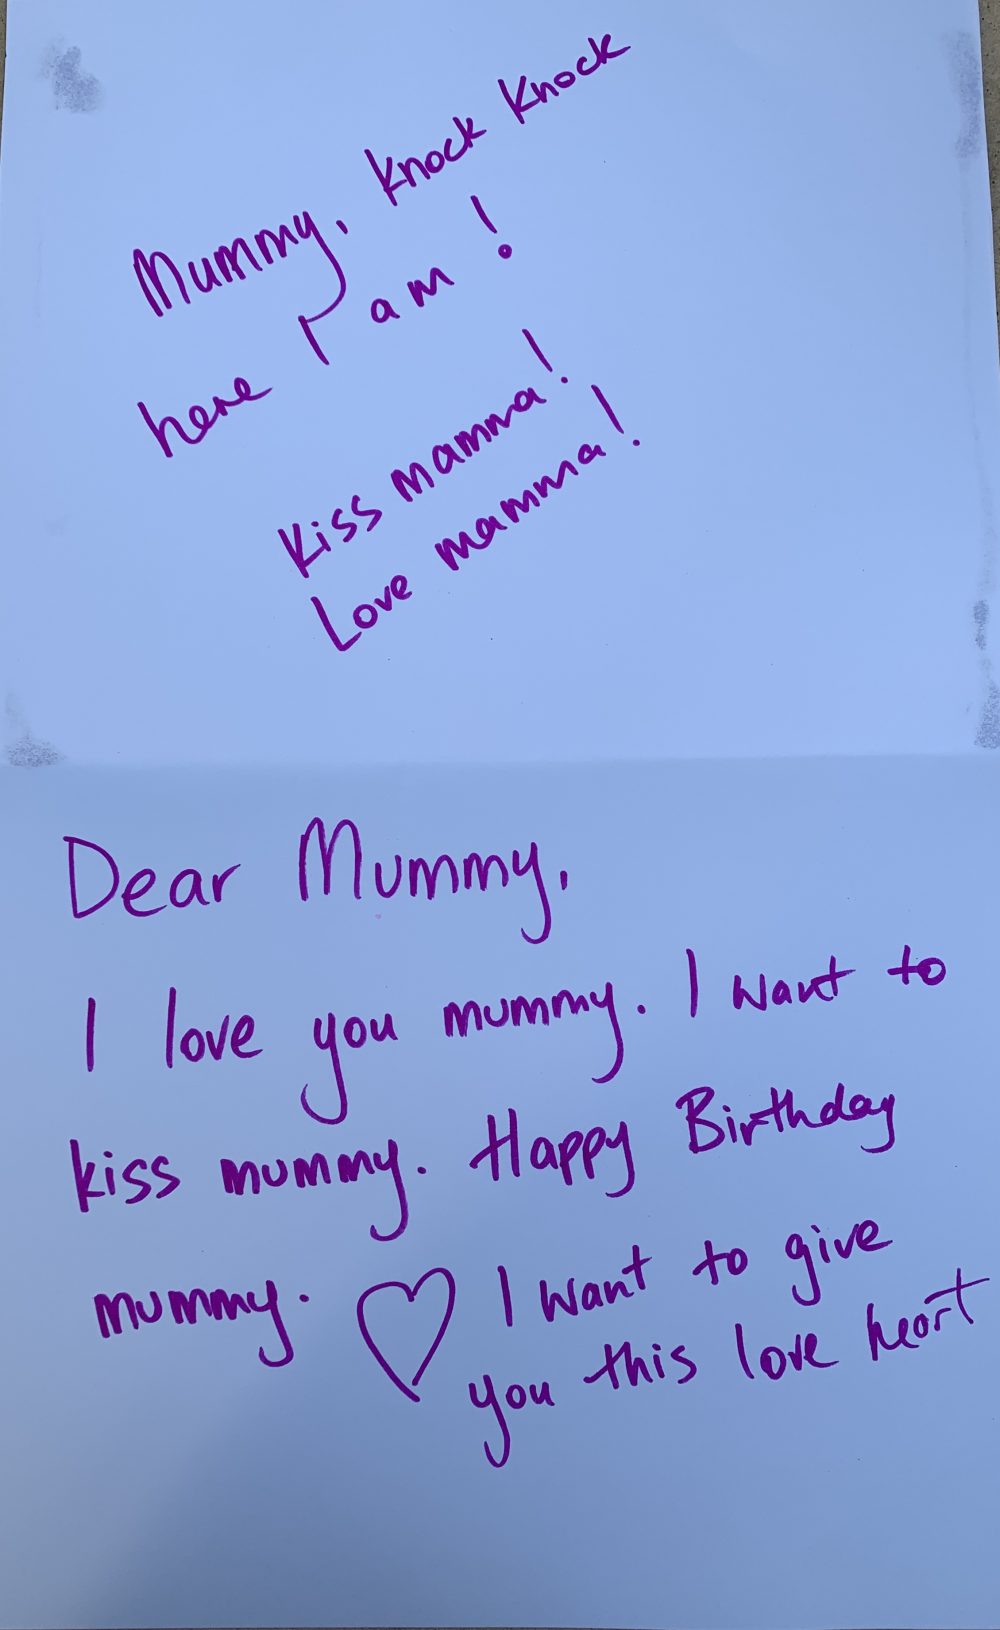 Mummy, Knock Knock
here I am!
Kiss mamma!
Love mamma!
Dear Mummy,
I love you mummy. I want to
kiss mummy. Happy Birthday
mummy. I want to give
you this love heart